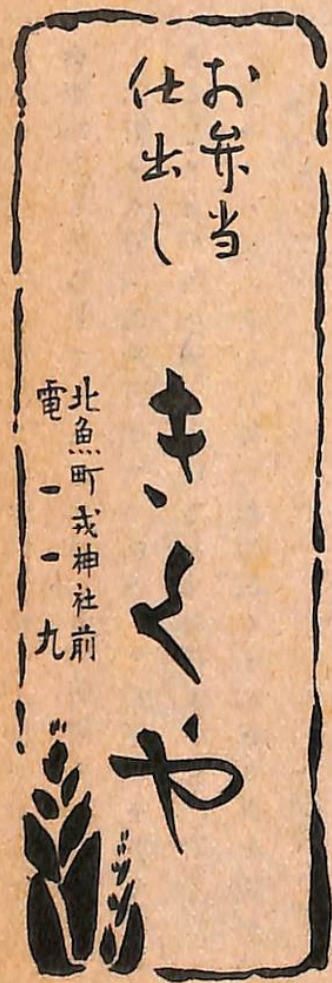 お弁当
仕出し
きくや
北魚町戎神社前
電一一九